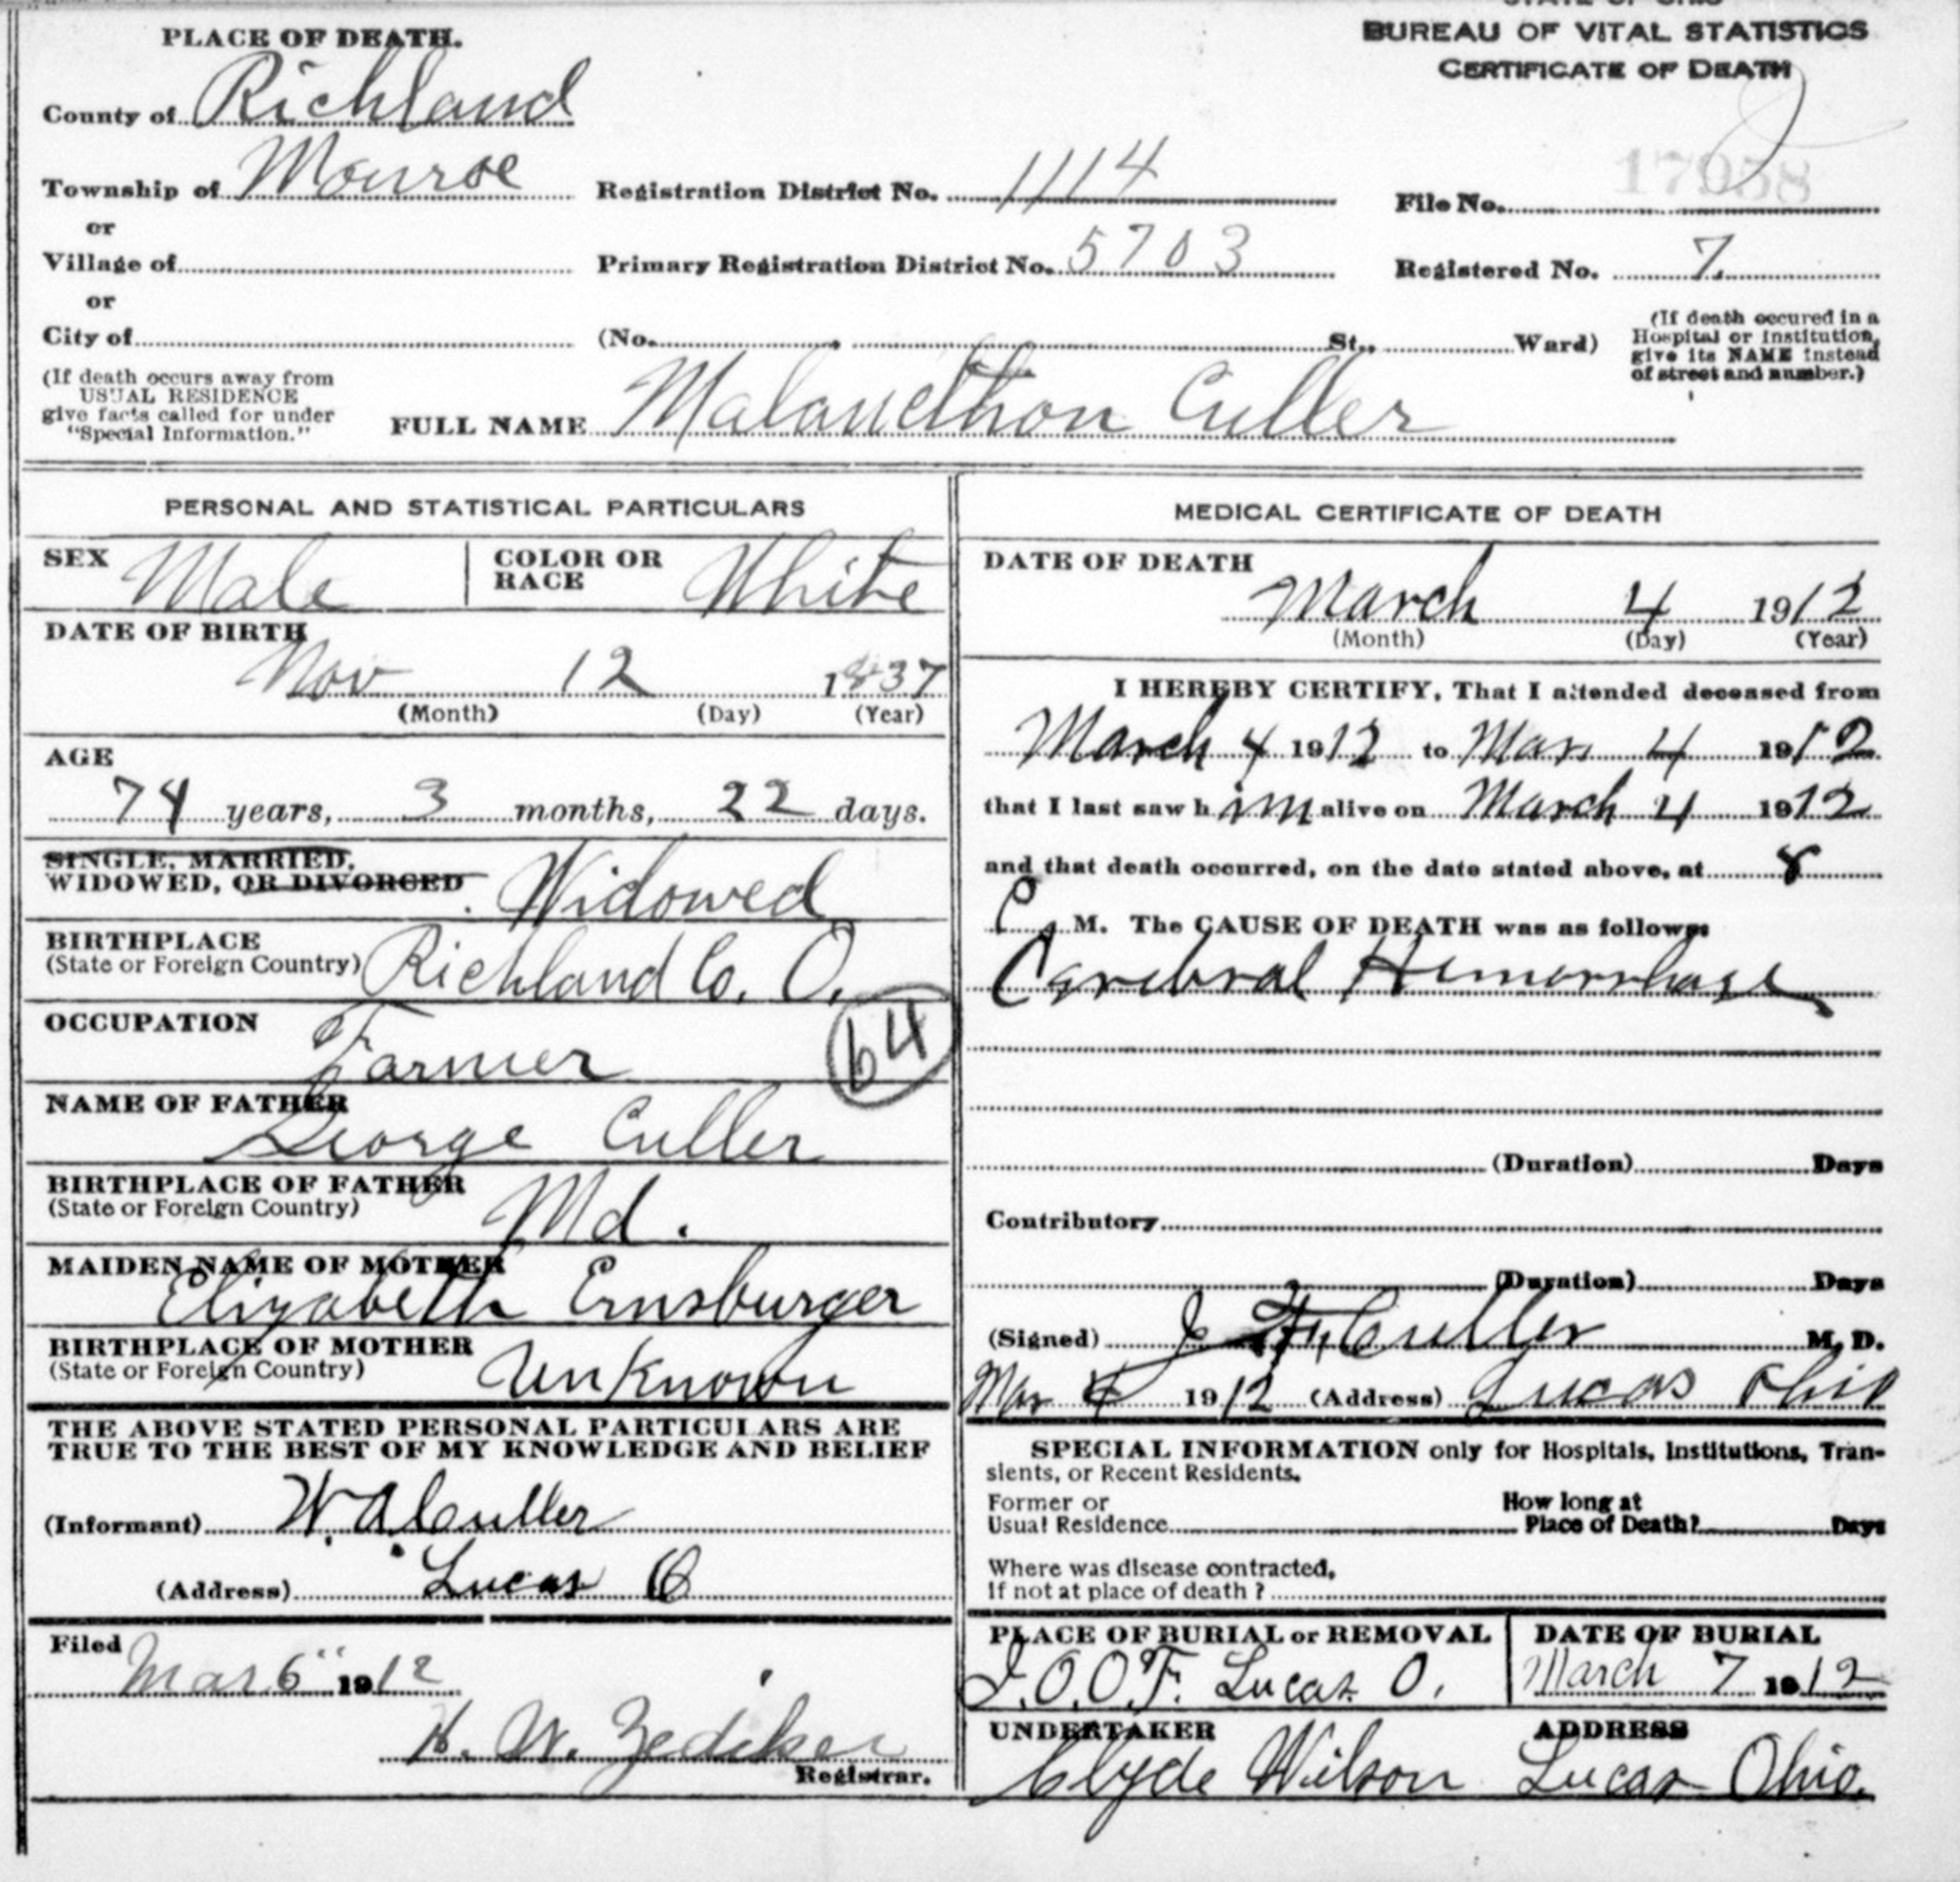 STATE OF OHIO
BUREAU OF VITAL STATISTICS
CERTIFICATE OF DEATH
PLACE OF DEATH.
County of Richland
Township of Monroe
Registration District No. 1114
File No. 17958
or
Village of
Primary Registration District No. 5703
Registered No. 7
or
City of
(No. , St., Ward)
(If death occured in a
Hospital or institution,
give its NAME instead
of street and number.)
(If death occurs away from
USUAL RESIDENCE
give facts called for under
"Special Information."
FULL NAME Malancthon Culler
PERSONAL AND STATISTICAL PARTICULARS
SEX Male
COLOR OR
RACE White
DATE OF BIRTH
Nov 12 1837
(Month) (Day) (Year)
AGE
74 years, 3 months, 22 days.
SINGLE, MARRIED,
WIDOWED, OR DIVORCED Widowed
BIRTHPLACE
(State or Foreign Country) Richland Co. O.
OCCUPATION
Farmer
64
NAME OF FATHER
George Culler
BIRTHPLACE OF FATHER
(State or Foreign Country) Md.
MAIDEN NAME OF MOTHER
Elizabeth Ernsburger
BIRTHPLACE OF MOTHER
(State or Foreign Country) Unknown
THE ABOVE STATED PERSONAL PARTICULARS ARE
TRUE TO THE BEST OF MY KNOWLEDGE AND BELIEF
(Informant) W. A. Culler
(Address) Lucas O
Filed
Mar 6" 1912
H. W. Zediker
Registrar.
MEDICAL CERTIFICATE OF DEATH
DATE OF DEATH
March 4 1912
(Month) (Day) (Year)
I HEREBY CERTIFY, That I attended deceased from
March 4 1912 to Mar 4 1912
that I last saw him alive on March 4 1912
and that death occurred, on the date stated above, at 8
P. M. The CAUSE OF DEATH was as follows:
Cerebral Hemorrhage
(Duration) Days
Contributory
(Duration) Days
(Signed) J. F. Culler M. D.
Mar 4 1912 (Address) Lucas Ohio
SPECIAL INFORMATION only for Hospitals, Institutions, Tran-
sients, or Recent Residents.
Former or
Usual Residence
How long at
Place of Death? Days
Where was disease contracted,
if not at place of death ?
PLACE OF BURIAL or REMOVAL
I.O.O.F. Lucas O.
DATE OF BURIAL
March 7 1912
UNDERTAKER
Clyde Wilson
ADDRESS
Lucas Ohio.